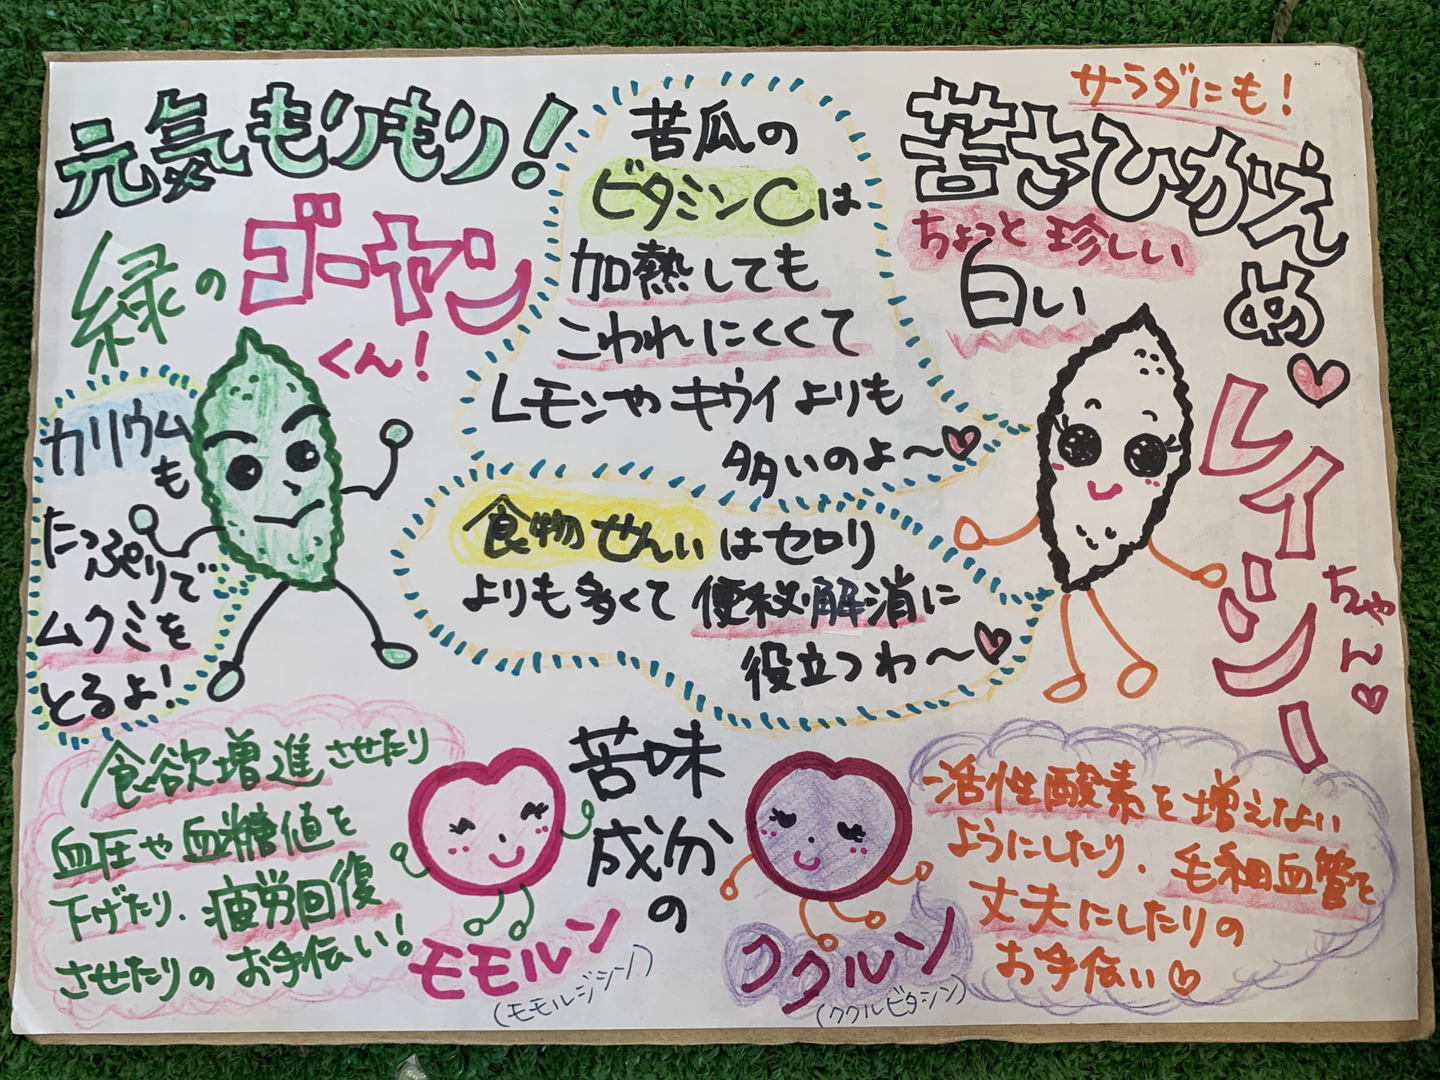 元気もりもり!
緑のゴーヤン
くん!
カリウム
も
たっぷりで
ムクミを
とるよ!
苦瓜の
ビタミンCは
加熱しても
こわれにくくて
レモンやキウイよりも
多いのよ〜♡
食物せんいはセロリ
よりも多くて便秘解消に
役立つわ〜♡
サラダにも!
苦さひかえめ♡
ちょっと珍しい
白い
レインシー
ちゃん♡
食欲増進させたり
血圧や血糖値を
下げたり、疲労回復
させたりのお手伝い!
苦味
成分
の
モモルン
(モモルジシン)
ククルン
(ククルビタシン)
活性酸素を増えない
ようにしたり、毛細血管を
丈夫にしたりの
お手伝い♡